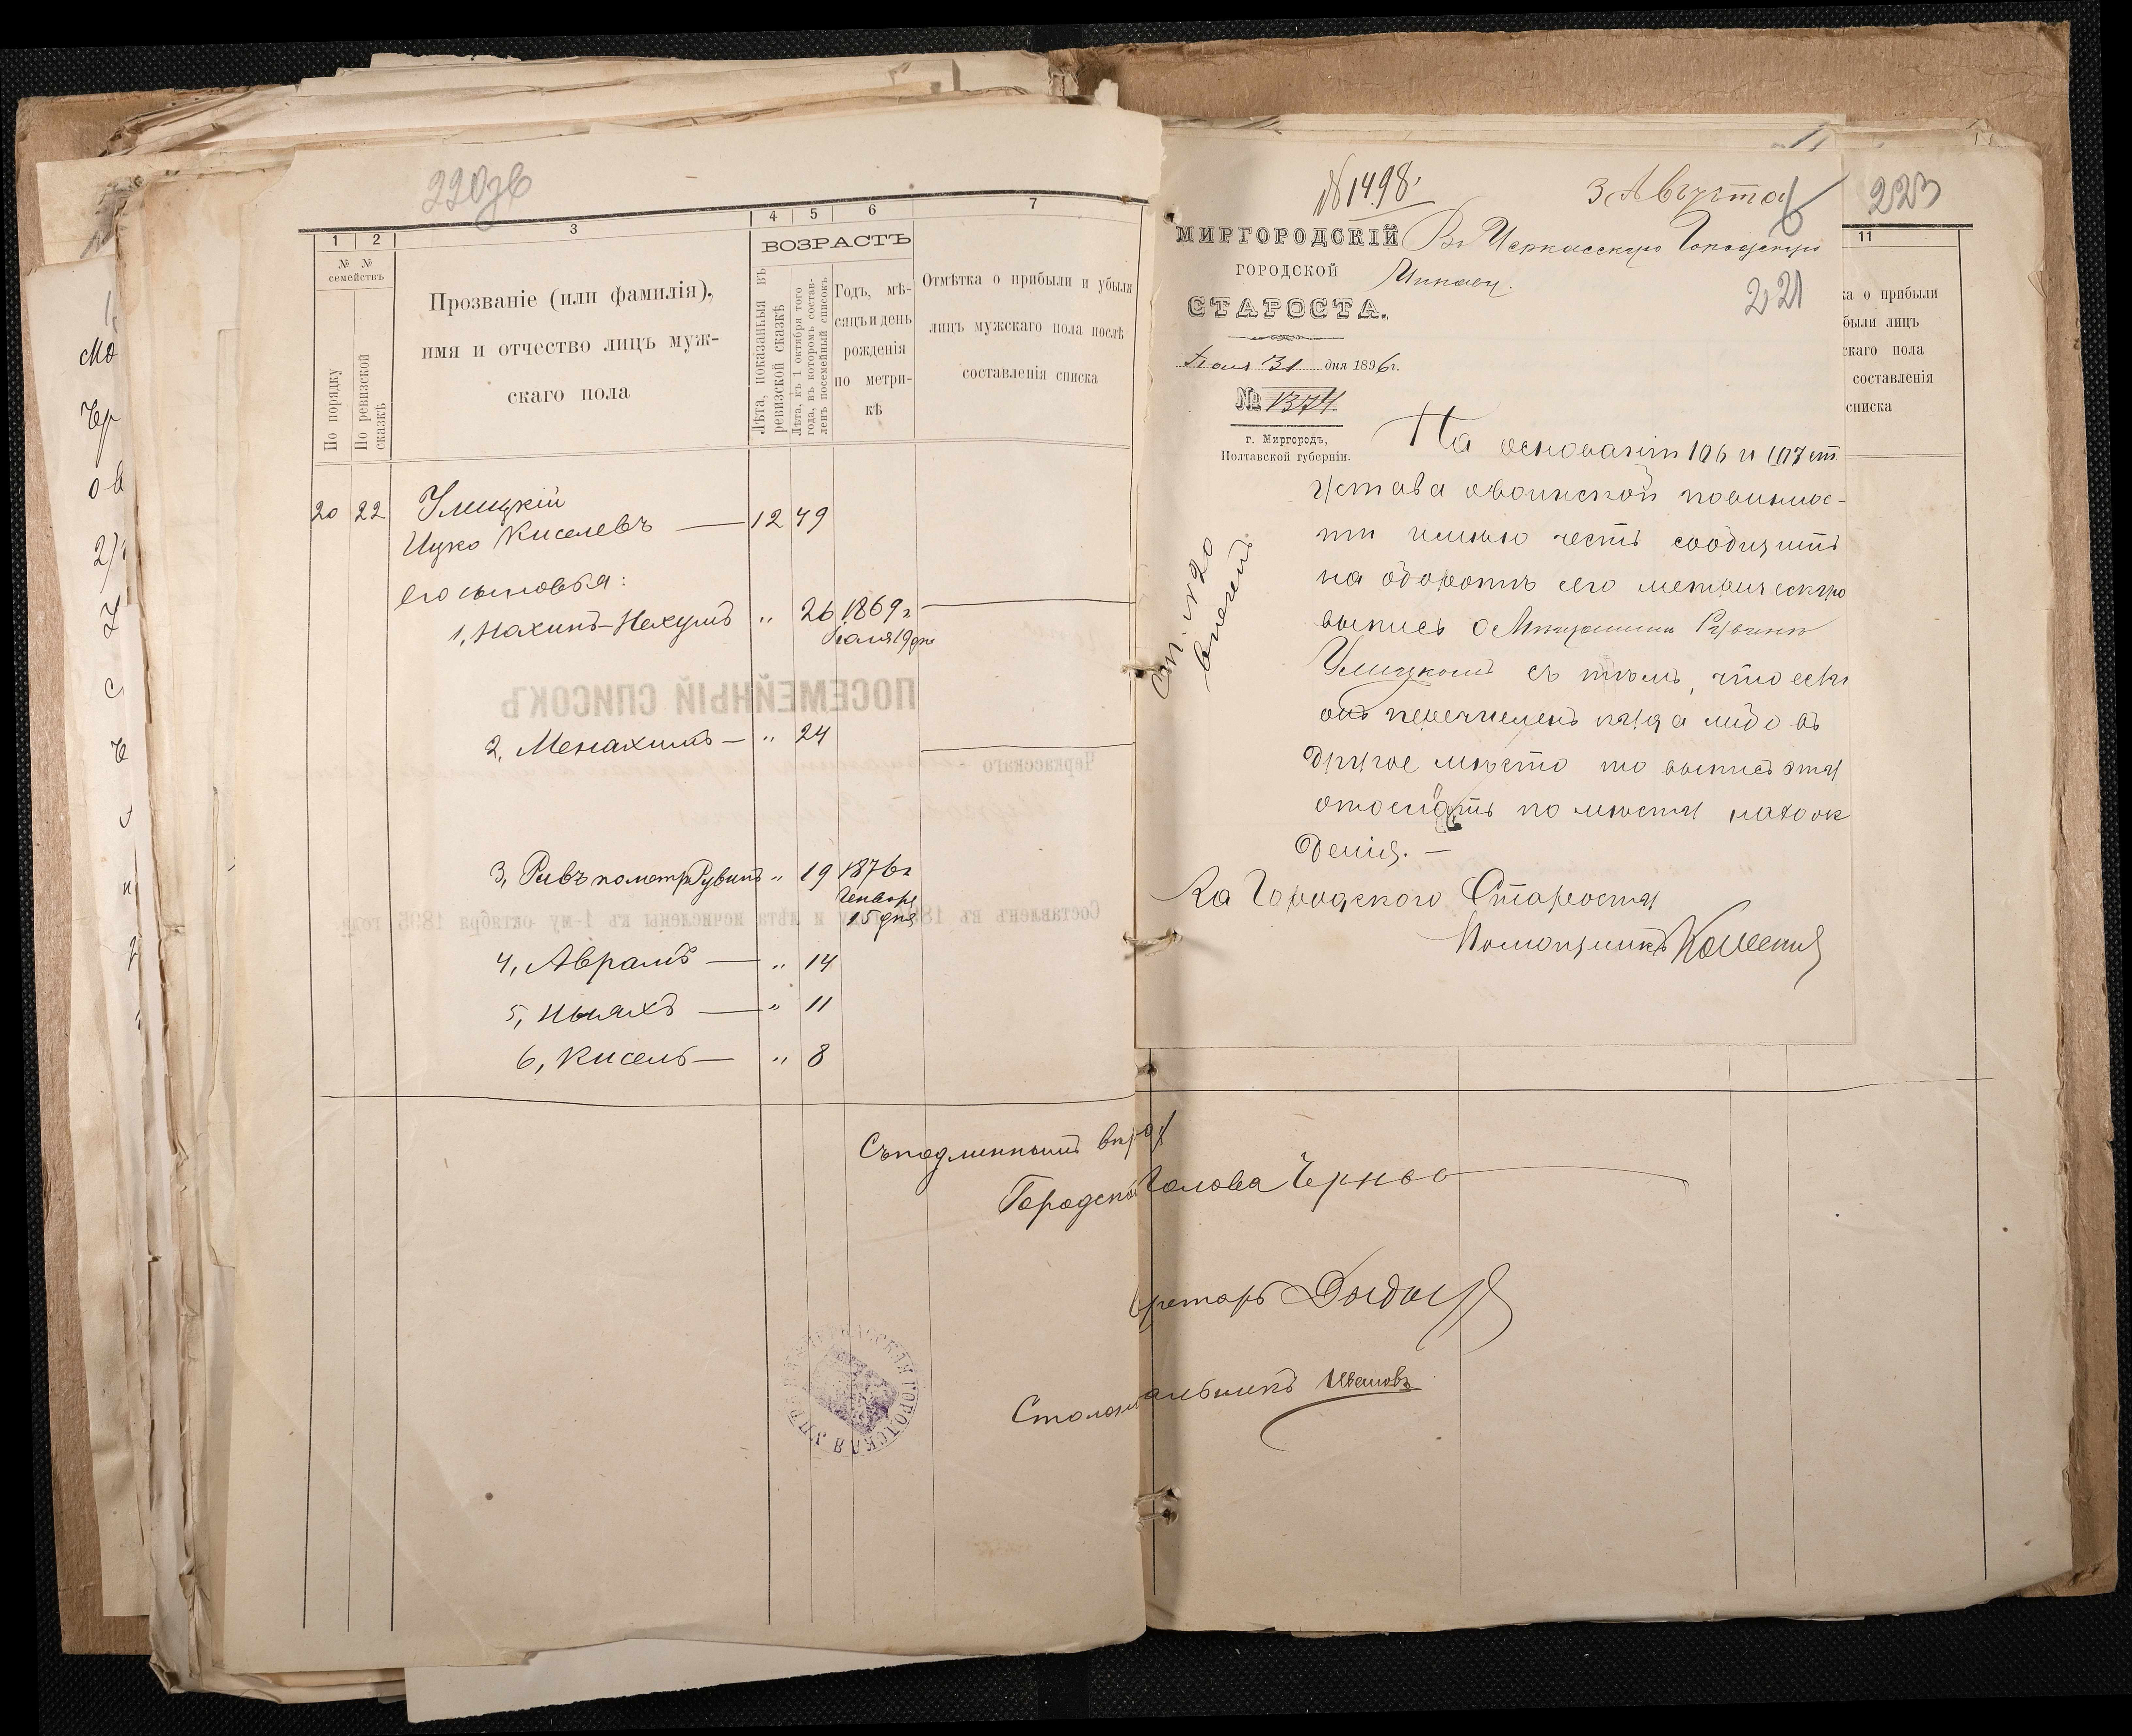 220зв
1 2 3 4 5 6 7
№ №
семействъ
По порядку
По ревизской сказкѣ
Прозваніе (или фамилія),
имя и отчество лицъ муж-
скаго пола
ВОЗРАСТЪ
Лѣта, показанныя въ
ревизской сказкѣ
Лѣта, къ 1 октября того
года, въ которомъ состав-
ленъ посемейный списокъ
Годъ, мѣ-
сяцъ и день
рожденія
по метри-
кѣ
Отмѣтка о прибыли и убыли
лицъ мужскаго пола послѣ
составленія списка
20 22 Улицкій
Ицко Киселевъ — 12 49
его сыновья:
1, Нахимъ-Нехумъ „ 26 1869 г
Іюля 19 дня
ПОСЕМЕЙНЫЙ СПИСОКЪ
2, Менахимъ — „ 24
Черкасскаго
3, Ривъ по метр Рувинъ „ 19 1876 г
Генваря
15 дня
Составленъ въ 18 и лѣта исчислены къ 1-му октября 1895 года.
4, Аврамъ — „ 14
5, — „ 11
6, Кисель — „ 8
Съ подлиннымъ
Городской Голова
Столоначальникъ Ивановъ
ЧЕРКАССКАЯ ГОРОДСКАЯ УПРАВА
№ 1498
3 Августа
223
МИРГОРОДСКІЙ
ГОРОДСКОЙ
СТАРОСТА.
Въ Черкасскую Городскую
Управу.
221
Іюля 31 дня 1896 г.
№ 1374
г. Миргородъ,
Полтавской губерніи.
На основаніи 106 и 107 ст.
Устава о воинской повиннос-
ти имѣю честь сообщить
на оборотѣ сего метрическую
выпись о Мѣщанинѣ Рувинѣ
Улицкомъ съ тѣмъ, что если
онъ перечисленъ куда либо въ
другое мѣсто то выпись эту
отослать по мѣсту нахож
денія. —
За Городского Старосту
Помощникъ
ст. №20
11
ка о прибыли
были лицъ
скаго пола
составленія
списка